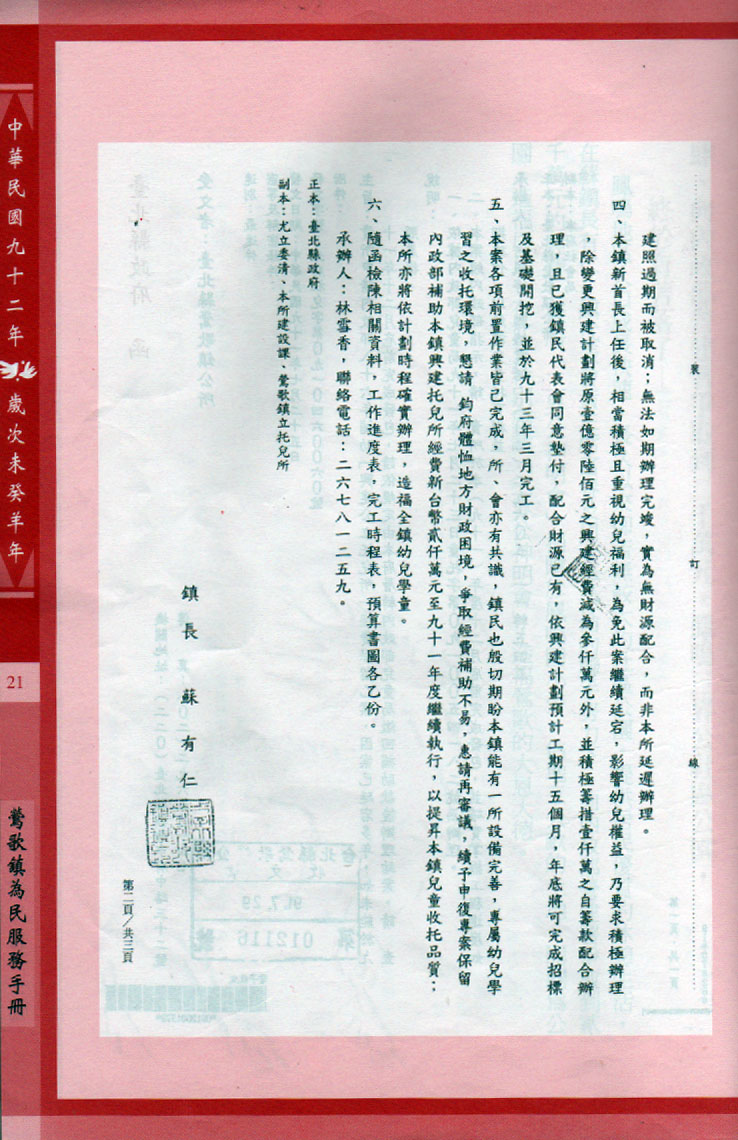 建照過期而被取消；無法如期辦理完竣，實為無財源配合，而非本所延遲辦理。
四、本鎮新首長上任後，相當積極且重視幼兒福利，為免此案繼續延宕，影響幼兒權益，乃要求積極辦理
，除變更興建計劃將原壹億零陸佰元之興建經費減為參仟萬元外，並積極籌措壹仟萬之自籌款配合辦
理，且已獲鎮民代表會同意墊付，配合財源已有，依興建計劃預計工期十五個月，年底將可完成招標
及基礎開挖，並於九十三年三月完工。
五、本案各項前置作業皆已完成，所、會亦有共識，鎮民也殷切期盼本鎮能有一所設備完善，專屬幼兒學
習之收托環境，懇請 鈞府體恤地方財政困境，爭取經費補助不易，惠請再審議，續予申復專案保留
內政部補助本鎮興建托兒所經費新台幣貳仟萬元至九十一年度繼續執行，以提昇本鎮兒童收托品質；
本所亦將依計劃時程確實辦理，造福全鎮幼兒學童。
六、隨函檢陳相關資料，工作進度表，完工時程表，預算書圖各乙份。
承辦人：林雪香，聯絡電話：二六七八一二五九。
正本：臺北縣政府
副本：尤立委清、本所建設課、鶯歌鎮立托兒所
鎮長 蘇有仁
第二頁／共三頁
裝
訂
線
中華民國九十二年
歲次未癸羊年
21
鶯歌鎮為民服務手冊